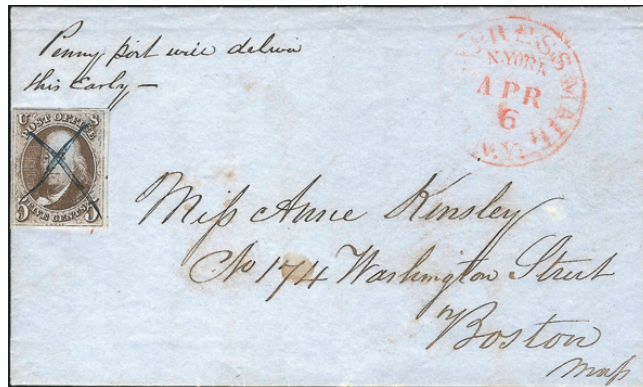 Penny post will deliver
this Early —
EXPRESS MAIL
N.YORK
APR
6
U S
POST OFFICE
5 FIVE CENTS 5
Miss Annie Kinsley
No 174 Washington Street
Boston
Mass